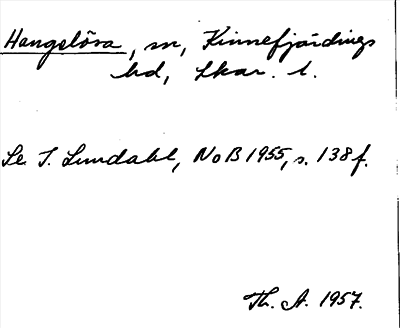 Hangelösa, sn, Kinnefjärdings
hd, Skar. l.
Se I. Lundahl, NoB 1955, s. 138 f.
Th. A. 1957.